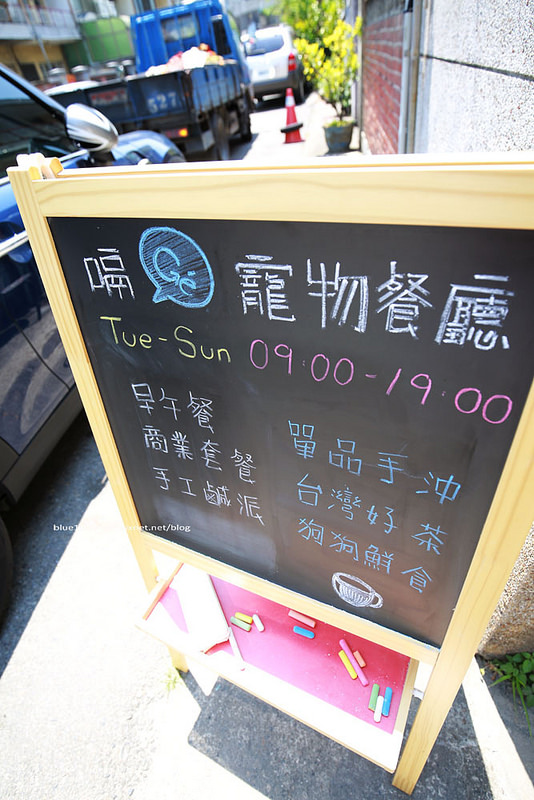 527
嗝 Ge 寵物餐廳
Tue-Sun 09:00-19:00
早午餐
商業套餐
手工鹹派
單品手沖
台灣好茶
狗狗鮮食